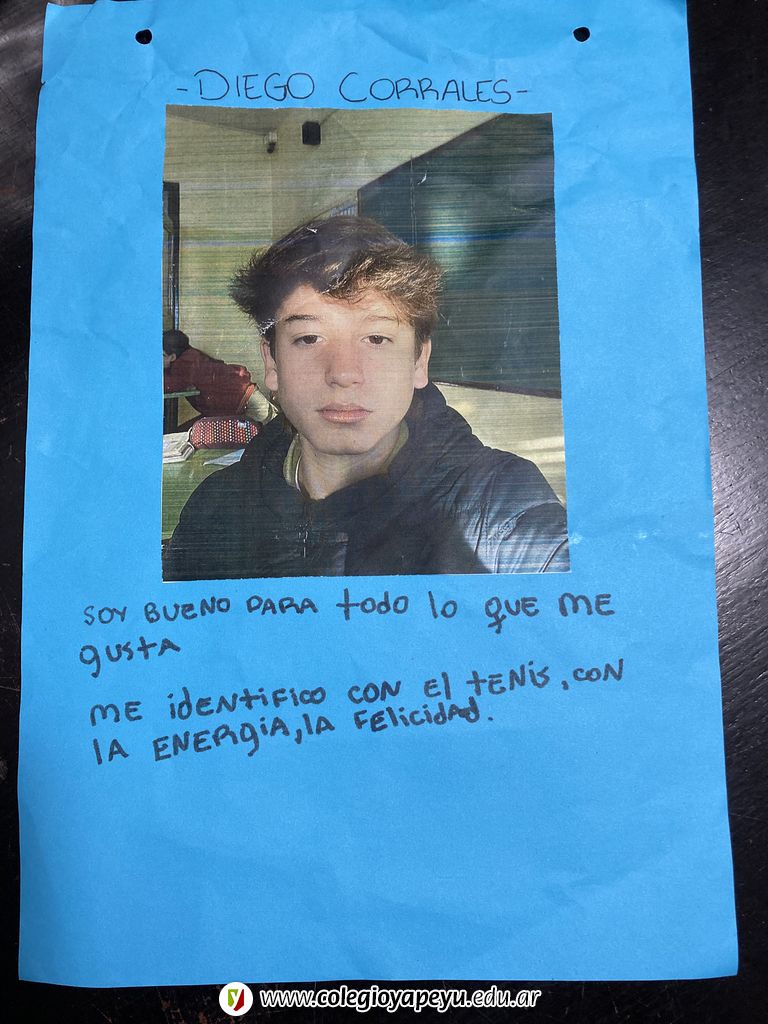 -DIEGO CORRALES-
SOY BUENO PARA todo lo QUE ME
gustA
ME idENtiFico CON El tENis, CON
lA ENERgiA, lA FElicidAd.
y www.colegioyapeyu.edu.ar